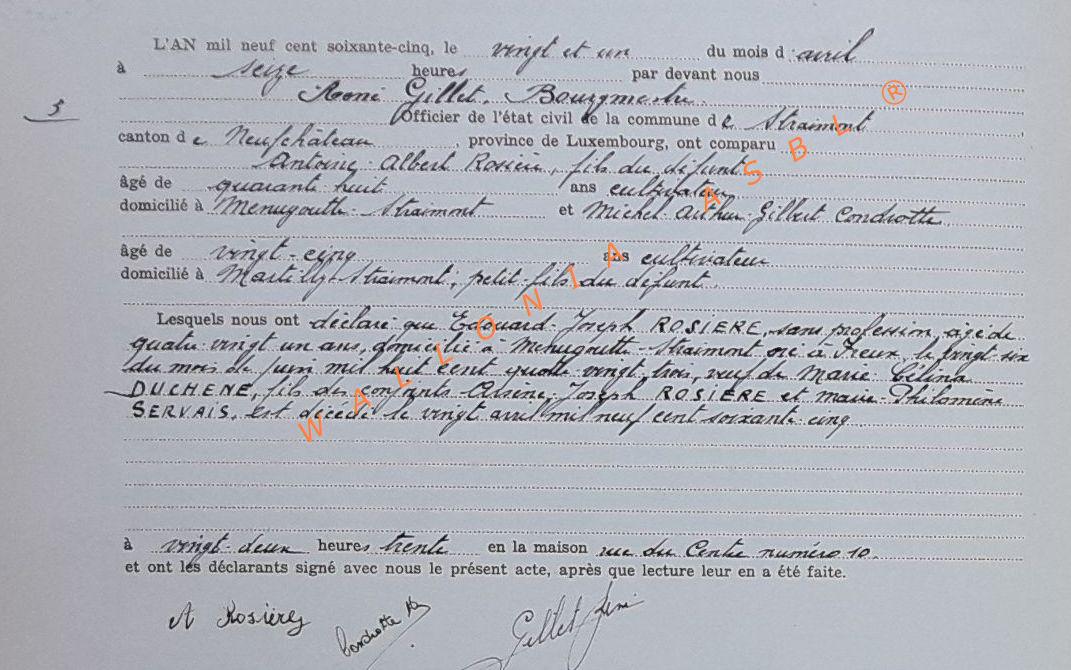 L'AN mil neuf cent soixante-cinq, le vingt et un du mois d avril
à seize heures par devant nous
René Gillet, Bourgmestre
Officier de l'état civil de la commune de Straimont
5
canton de Neufchâteau, province de Luxembourg, ont comparu
Antoine Albert Rosière, fils du défunt
âgé de quarante huit ans cultivateur
domicilié à Menugoutte-Straimont et Michel Arthur Gilbert Conrotte
âgé de vingt-cinq ans cultivateur
domicilié à Martilly-Straimont, petit-fils du défunt.
Lesquels nous ont déclaré que Edouard-Joseph ROSIERE, sans profession, âgé de
quatre-vingt un ans, domicilié à Menugoutte-Straimont né à le vingt six
du mois de juin mil huit cent quatre vingt trois, veuf de Marie Célina
DUCHENE, fils des conjoints Arsène Joseph ROSIERE et Marie-Philomène
SERVAIS, est décédé le vingt avril mil neuf cent soixante cinq
à vingt-deux heures trente en la maison rue du Centre numéro 10.
et ont les déclarants signé avec nous le présent acte, après que lecture leur en a été faite.
A Rosière Gillet René
WALLONIA ASBL ®